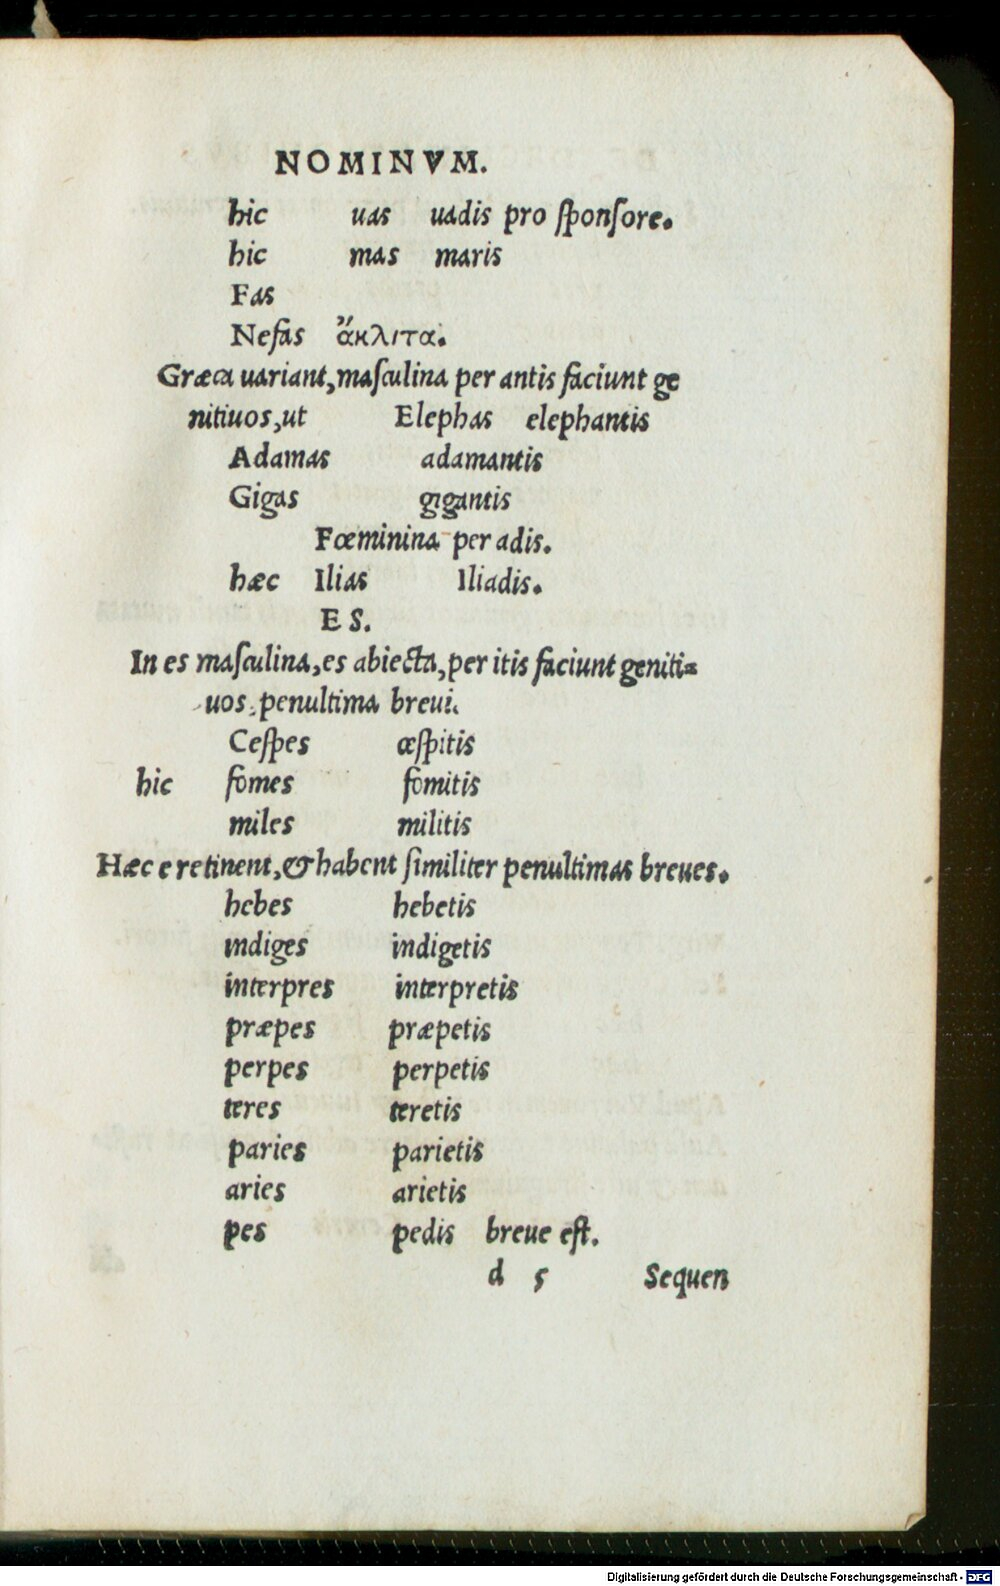 NOMINVM.
hic uas uadis pro sponsore.
hic mas maris
Fas
Nefas ἄκλιτα.
Græca uariant, masculina per antis faciunt ge
nitiuos, ut Elephas elephantis
Adamas adamantis
Gigas gigantis
Fœminina per adis.
hæc Ilias Iliadis.
ES.
In es masculina, es abiecta, per itis faciunt geniti=
uos, penultima breui.
Cespes cæspitis
hic fomes fomitis
miles militis
Hæc e retinent, & habent similiter penultimas breues.
hebes hebetis
indiges indigetis
interpres interpretis
præpes præpetis
perpes perpetis
teres teretis
paries parietis
aries arietis
pes pedis breue est.
d 5 Sequen
Digitalisierung gefördert durch die Deutsche Forschungsgemeinschaft - DFG